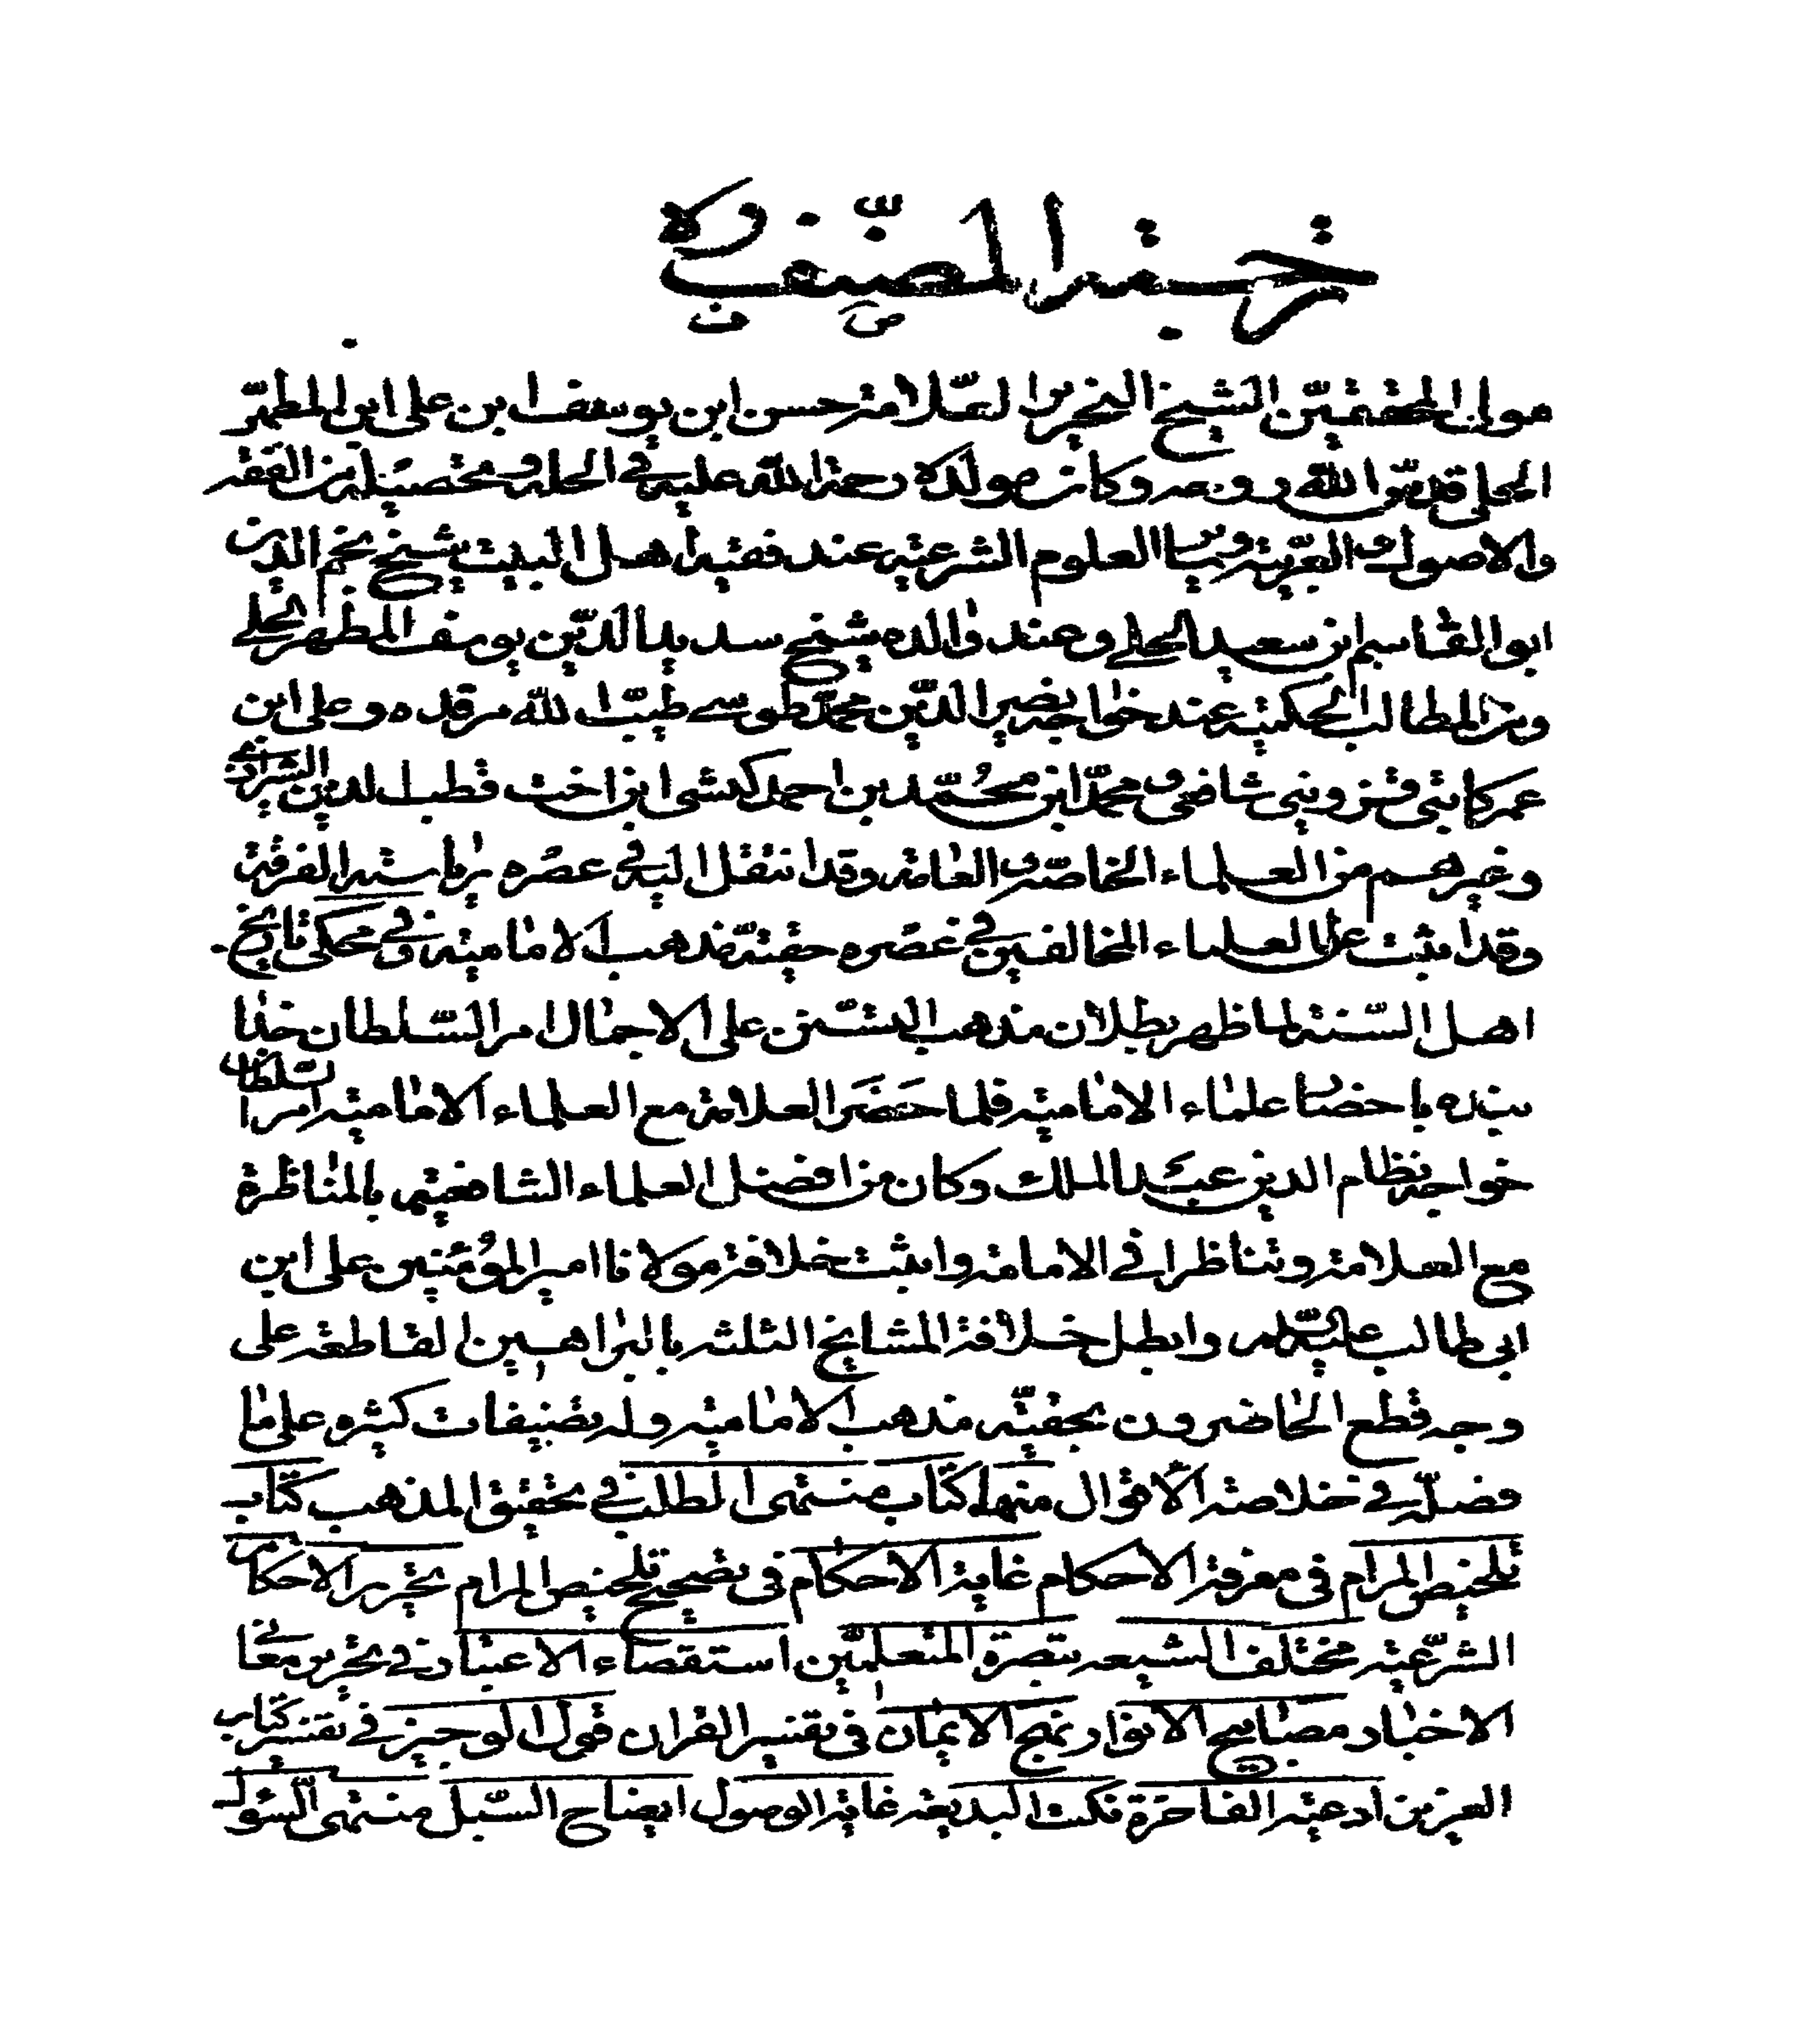 ترجمة المصنف قده
مولى المحققين الشيخ النحرير العلامة حسن ابن يوسف ابن على ابن المطهّر
الحلي قدس الله روحه وكان مولده رحمة الله عليه في الحله و تحصيله من الفقه
والاصول و العربية وساير العلوم الشرعيه عند فقيه اهل البيت شيخ نجم الدين
ابو القاسم ابن سعيد الحلي وعند والده شيخ سديد الدّين يوسف المطهر الحلي
ومن المطالب الحكميه عند خواجه نصير الدّين محمّد طوسي طيّب الله مرقده وعلى ابن
عمر كاتبى قزوينى شافعى و محمّد ابن محمّد بن احمد كيشى ابن اخت قطب الدين الشيرازي
وغيرهم من العلماء الخاصّه و العامة وقد انتقل اليه في عصره رياسة الفرقة
وقد اثبت على العلماء المخالفين في عصره حقيّة مذهب الامامية وفي محكى تاريخ
اهل السّنة لما ظهر بطلان مذهب التسنّن على الاجمال امر السّلطان خدا
بنده باحضار علماء الامامية فلما حضر العلامة مع العلماء الامامية امر السّلطان
خواجه نظام الدين عبد الملك وكان من افضل العلماء الشافعية بالمناظرة
مع العلامة وتناظرا في الامامة واثبت خلافة مولانا امير المؤمنين على ابن
ابى طالب عليه السّلام وابطل خلافة المشايخ الثلثه بالبراهين القاطعة على
وجه قطع الحاضرون بحقيّه مذهب الامامية وله تصنيفات كثيره على ما
فصّله في خلاصة الاقوال منها كتاب منتهى المطلب في تحقيق المذهب كتاب
تلخيص المرام فى معرفة الاحكام غاية الاحكام فى تصحيح تلخيص المرام تحرير الاحكام
الشرعيّه مختلف الشيعه تبصرة المتعلمين استقصاء الاعتبار في تحرير معاني
الاخبار مصابيح الانوار نهج الايمان فى تفسير القران قول الوجيز في تفسير كتاب
العزيز ادعيه الفاخرة نكت البديعه غاية الوصول ايضاح السّبل منتهى السّئول